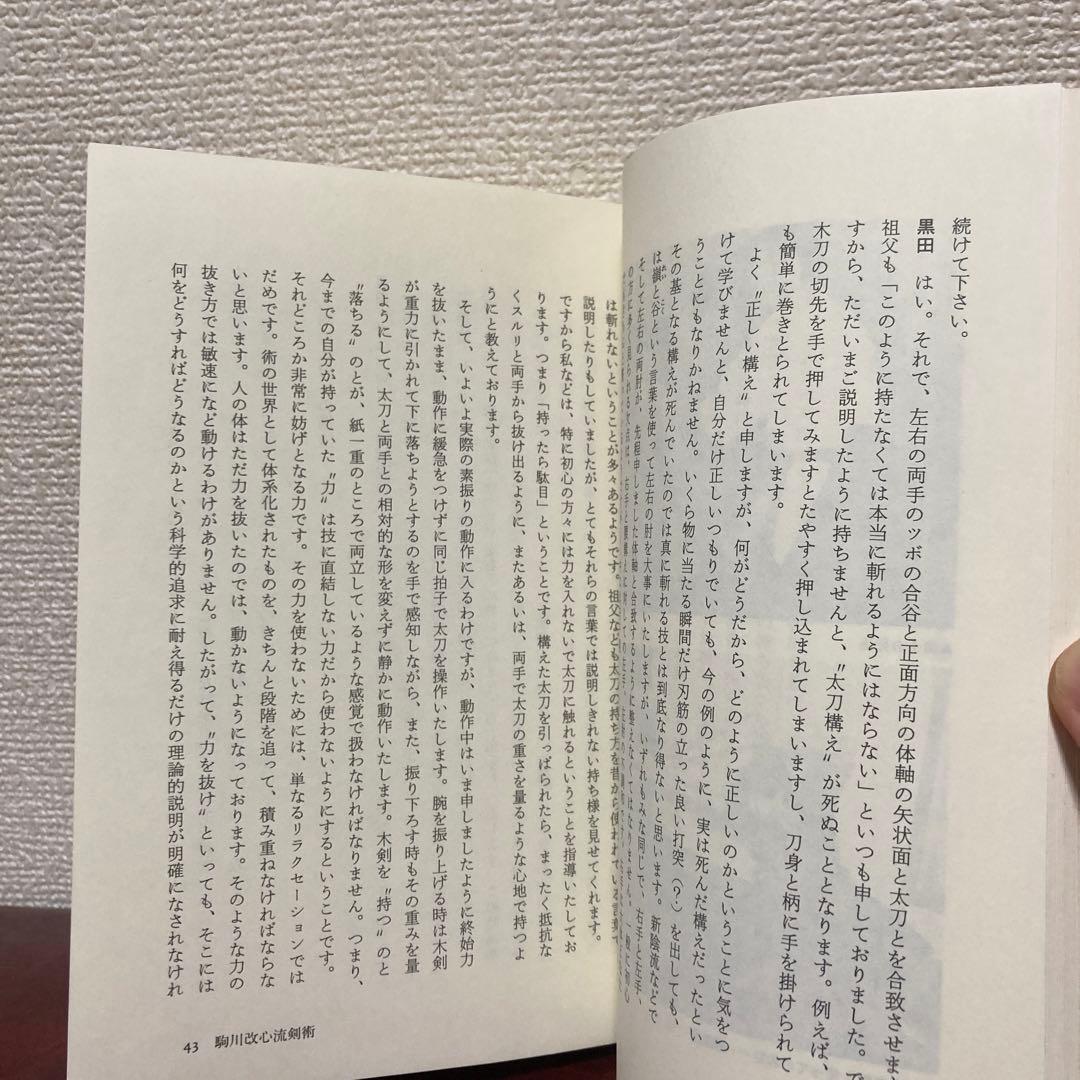 続けて下さい。
黒田　はい。それで、左右の両手のツボの合谷と正面方向の体軸の矢状面と太刀とを合致させま
祖父も「このように持たなくては本当に斬れるようにはならない」といつも申しておりました。で
すから、ただいまご説明したように持ちませんと、〝太刀構え〟が死ぬこととなります。例えば、
木刀の切先を手で押してみますとたやすく押し込まれてしまいますし、刀身と柄に手を掛けられて
も簡単に巻きとられてしまいます。
よく〝正しい構え〟と申しますが、何がどうだから、どのように正しいのかということに気をつ
けて学びませんと、自分だけ正しいつもりでいても、今の例のように、実は死んだ構えだったとい
うことにもなりかねません。いくら物に当たる瞬間だけ刃筋の立った良い打突（？）を出しても、
その基となる構えが死んでいたのでは真に斬れる技とは到底なり得ないと思います。新陰流などで
は嶺と谷という言葉を使って左右の肘を大事にいたしますが、いずれもみな同じで、右手と左手、
そして左右の両肘が、先程申しました体軸と合致するように整えなくてはなりません。一般に初心
は斬れないということが多々あるようです。祖父なども太刀の持ち方を昔から使われている言葉で
説明したりもしていましたが、とてもそれらの言葉では説明しきれない持ち様を見せてくれます。
ですから私などは、特に初心の方々には力を入れないで太刀に触れるということを指導いたしてお
ります。つまり「持ったら駄目」ということです。構えた太刀を引っぱられたら、まったく抵抗な
くスルリと両手から抜け出るように、またあるいは、両手で太刀の重さを量るような心地で持つよ
うにと教えております。
そして、いよいよ実際の素振りの動作に入るわけですが、動作中はいま申しましたように終始力
を抜いたまま、動作に緩急をつけずに同じ拍子で太刀を操作いたします。腕を振り上げる時は木剣
が重力に引かれて下に落ちようとするのを手で感知しながら、また、振り下ろす時もその重みを量
るようにして、太刀と両手との相対的な形を変えずに静かに動作いたします。木剣を〝持つ〟のと
〝落ちる〟のとが、紙一重のところで両立しているような感覚で扱わなければなりません。つまり、
今までの自分が持っていた〝力〟は技に直結しない力だから使わないようにするということです。
それどころか非常に妨げとなる力です。その力を使わないためには、単なるリラクセーションでは
だめです。術の世界として体系化されたものを、きちんと段階を追って、積み重ねなければならな
いと思います。人の体はただ力を抜いたのでは、動かないようになっております。そのような力の
抜き方では敏速になど動けるわけがありません。したがって、〝力を抜け〟といっても、そこには
何をどうすればどうなるのかという科学的追求に耐え得るだけの理論的説明が明確になされなけれ
43　駒川改心流剣術